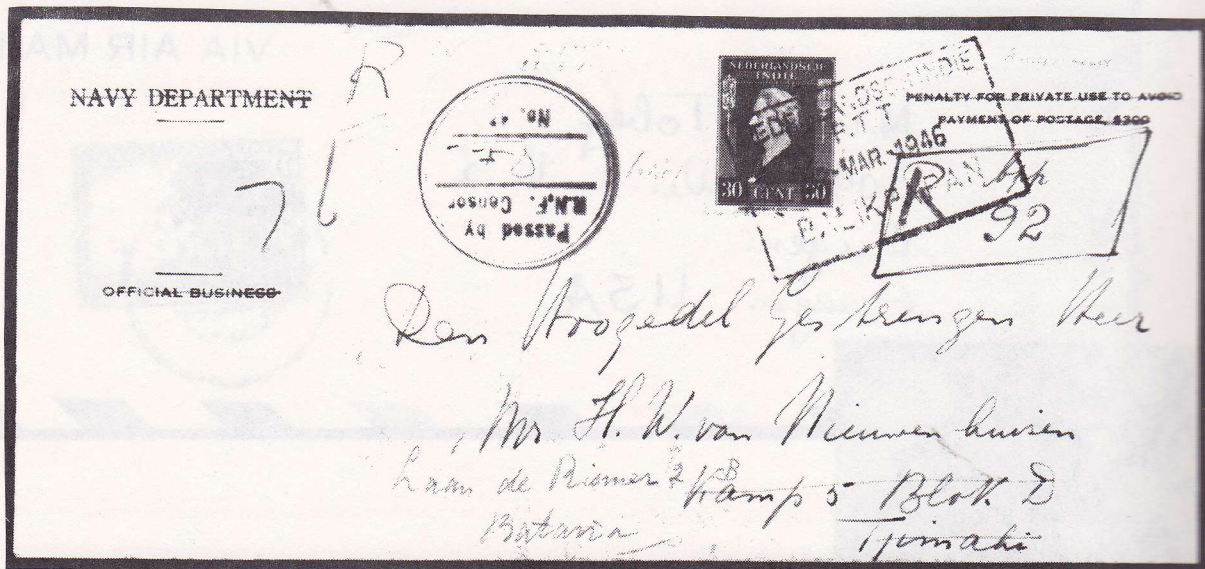 NAVY DEPARTMENT
OFFICIAL BUSINESS
R
Passed by
R.N.F. Censor
No.
NEDERLANDSCH
INDIE
30 CENT 30
NEDERLANDSCH INDIE
P.T.T.
MAR. 1946
BALIKPAPAN
PENALTY FOR PRIVATE USE TO AVOID
PAYMENT OF POSTAGE, $300
R
92
Den Hoogedel Gestrengen Heer
Mr. H. W. van Nieuwenhuisen
Kamp 5 Blok D
Tjimahi
Laan de Riemer
Batavia
VIA AIR MA
USA